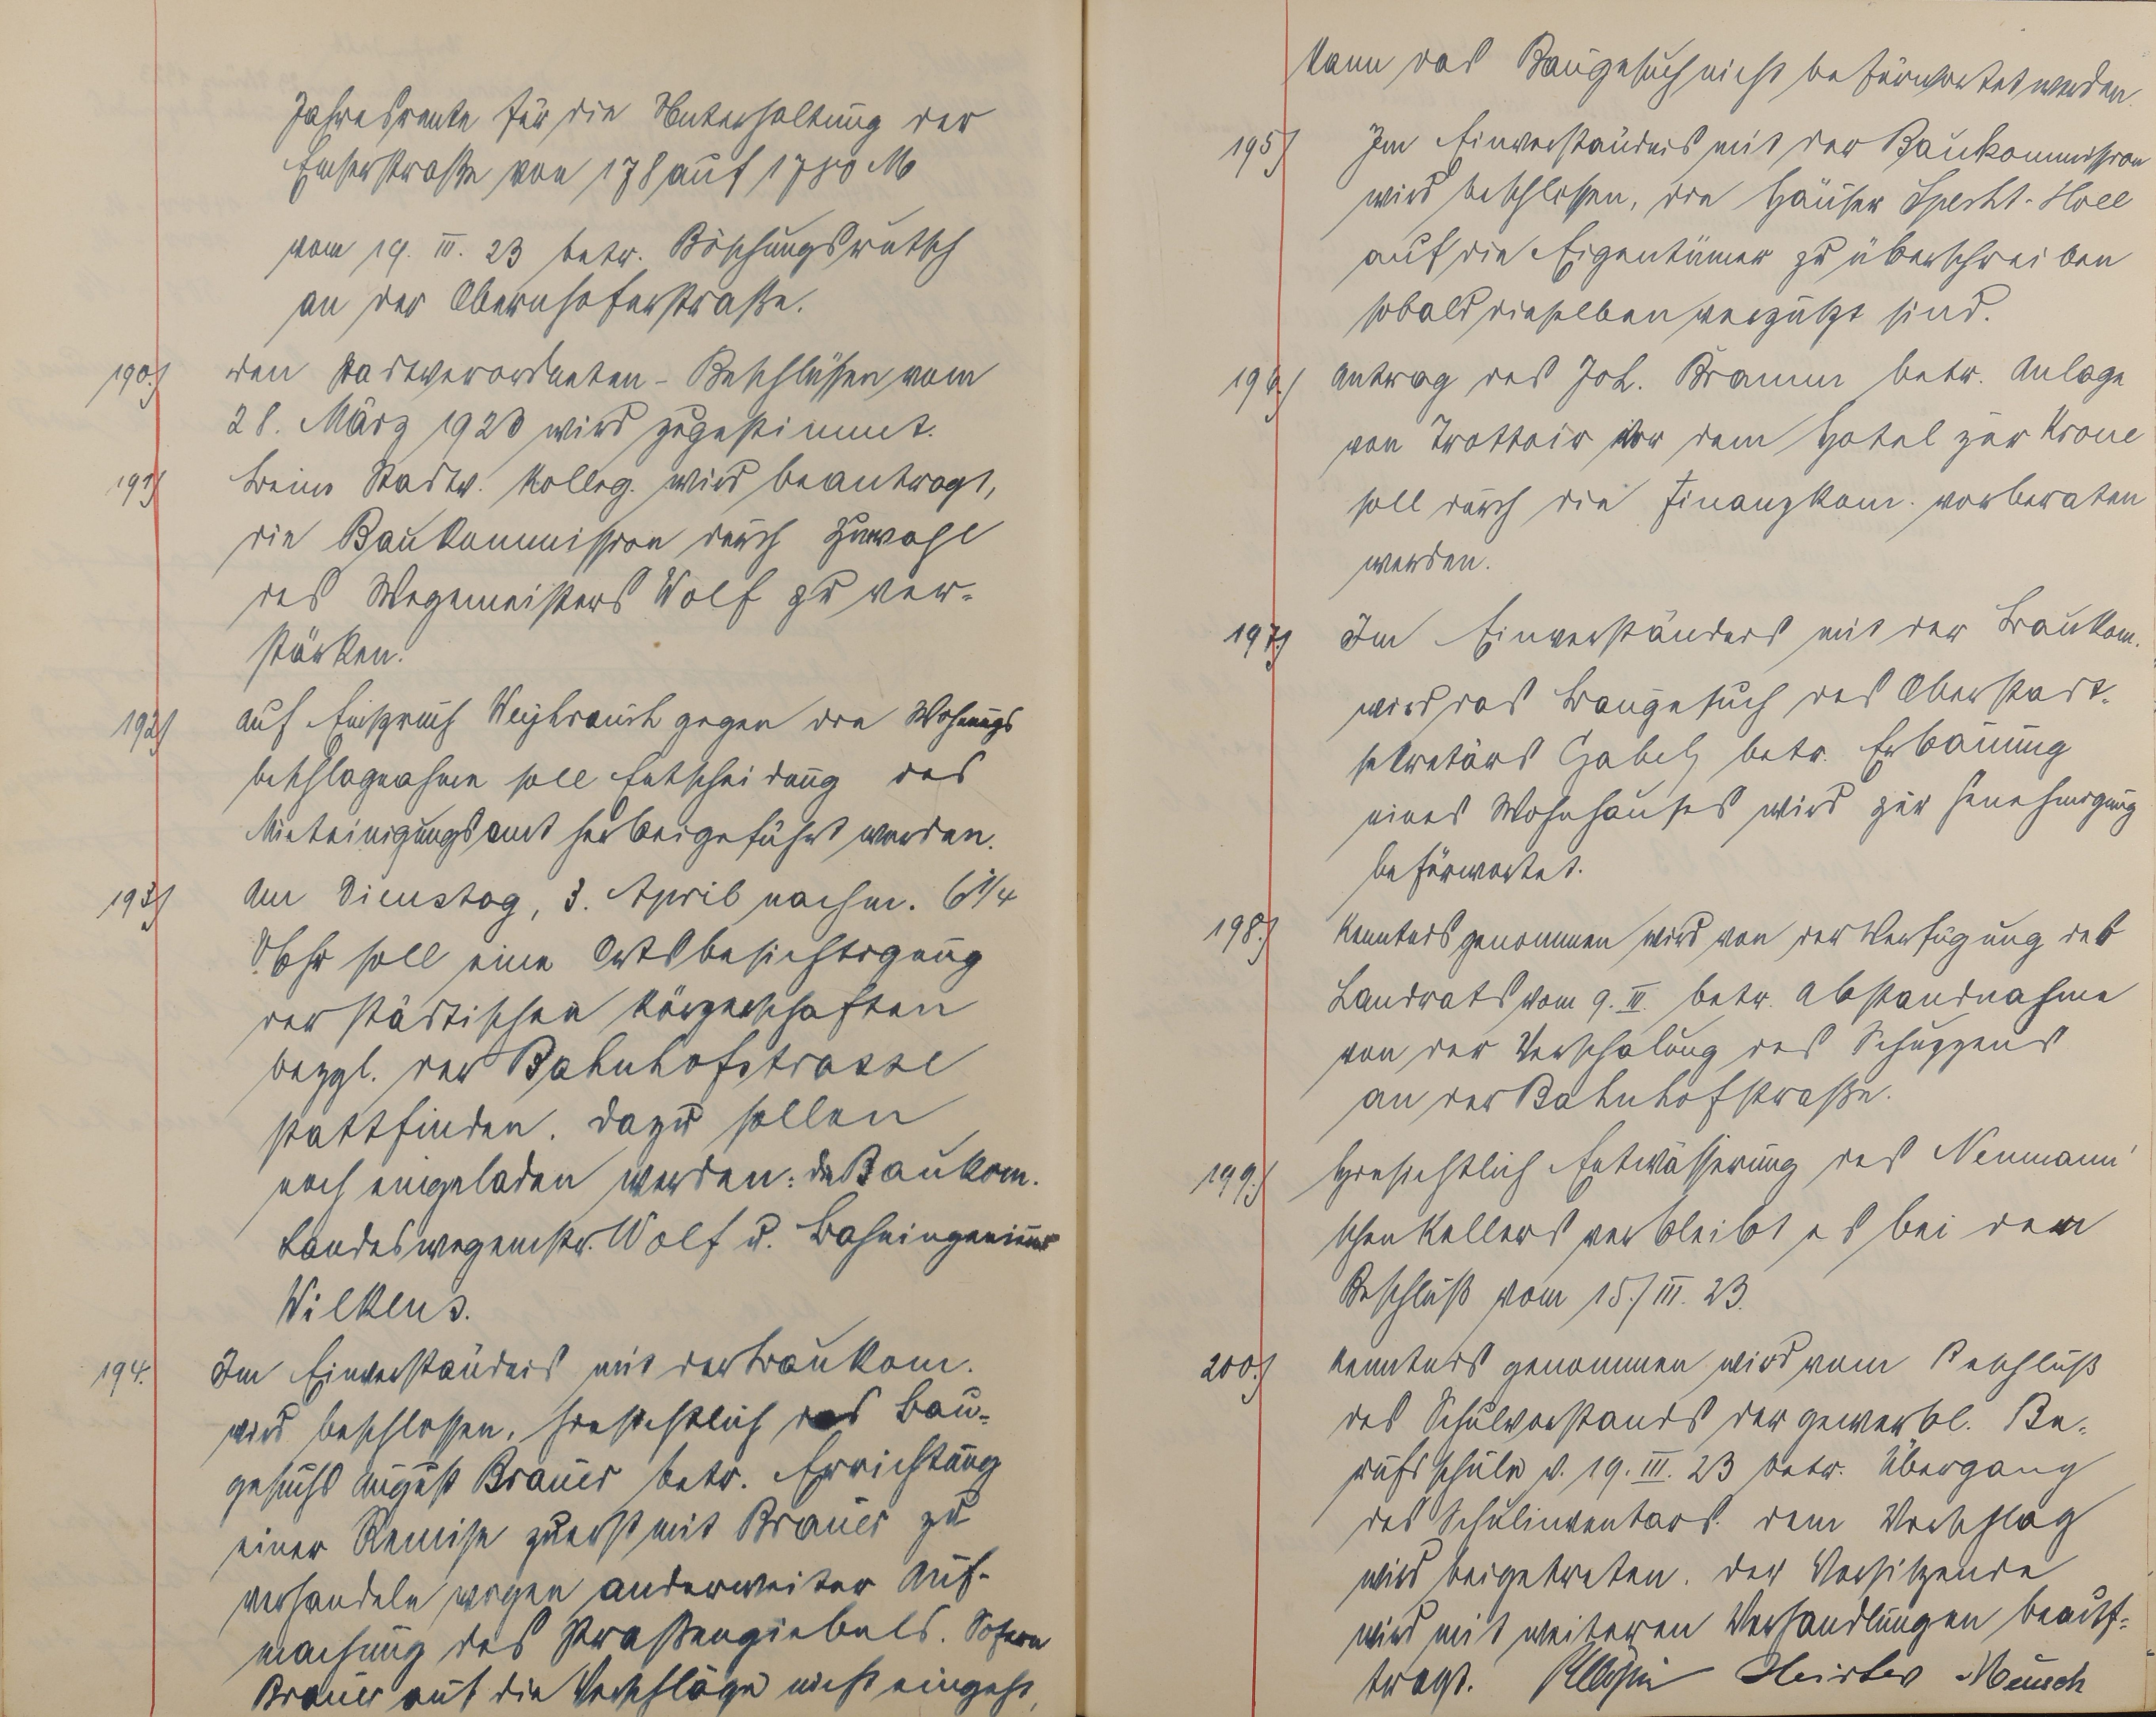 Jahresrente für die Unterhaltung der
Emserstraße von 178 auf 1780 M
vom 19. III. 23 betr. Böschungsrutsch
an der Obernhoferstraße.
190.) den Stadtverordneten-Beschlüssen vom
28. März 1923 wird zugestimmt.
191.) Beim Stadtv. Kolleg. wird beantragt,
die Baukommission durch Zuwahl
des Wegemeisters Wolf zu ver-
stärken.
192.) auf Einspruch Weyhrauch gegen die Wohnungs
beschlagnahme soll Entscheidung des
Mieteinigungsamt herbeigeführt werden.
193.) Am Dienstag, 3. April nachm. 6 1/4
Uhr soll eine Ortsbesichtigung
der städtischen Körperschaften
bezgl. der Bahnhofstrasse
stattfinden. Dazu sollen
noch eingeladen werden: die Baukom.
Landeswegemstr. Wolf u. Bahningenieur
Wilkens.
194. Im Einverständnis mit der Baukom.
wird beschlossen, hinsichtlich des Bau-
gesuchs August Brauer betr. Errichtung
einer Remise zuerst mit Brauer zu
verhandeln wegen anderweiter Auf-
machung des Straßengiebels. Sofern
Brauer auf die Vorschläge nicht eingeht,
kann das Baugesuch nicht befürwortet werden.
195) Im Einverständnis mit der Baukommission
wird beschlossen, die Häuser Specht-Holl
auf die Eigentümer zu überschreiben
sobald dieselben verputzt sind.
196.) Antrag des Joh. Bramm betr. Anlage
von Trottoir vor dem Hotel zur Krone
soll durch die Finanzkom. vorberaten
werden.
197.) Im Einverständnis mit der Baukom.
wird das Baugesuch des Oberstadt-
sekretärs Gabel betr. Erbauung
eines Wohnhauses wird zur Genehmigung
befürwortet.
198.) Kenntnis genommen wird von der Verfügung des
Landrats vom 9. III. betr. Abstandnahme
von der Verschalung des Schuppens
an der Bahnhofstraße.
199.) Hinsichtlich Entwässerung des Neumann'
schen Kellers verbleibt es bei dem
Beschluß vom 15./III. 23.
200.) Kenntnis genommen wird vom Beschluß
des Schulvorstands der gewerbl. Be-
rufsschule v. 19. III. 23 betr. Übergang
des Schulinventars. dem Vorschlag
wird beigetreten. Der Vorsitzende
wird mit weiteren Verhandlungen beauf-
tragt. Meusch